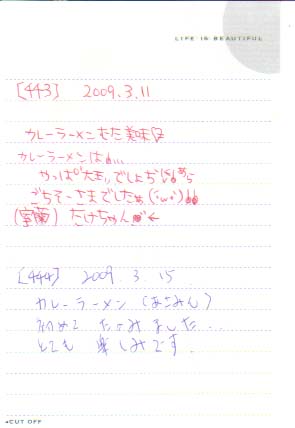 LIFE IS BEAUTIFUL
[443] 2009.3.11
カレーラーメンまた美味
カレーラーメンは…
やっぱ"大き"でしょぢ
ごちそーさまでしたぁ(・ω・)
(室蘭) たけちゃん ←
[444] 2009.3.15
カレーラーメン(あさみん)
初めて たのみました…
とても 楽しみです.
◂CUT OFF